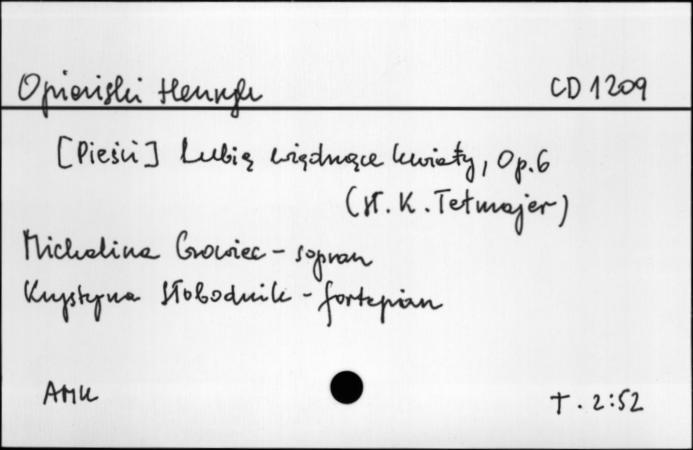 Opieński Henryk CD 1209
[Pieśni] Lubię więdnące kwiaty, Op.6
(sł. K. Tetmajer)
Michalina Growiec - sopran
Krystyna Słobodnik - fortepian
AMK T. 2:52